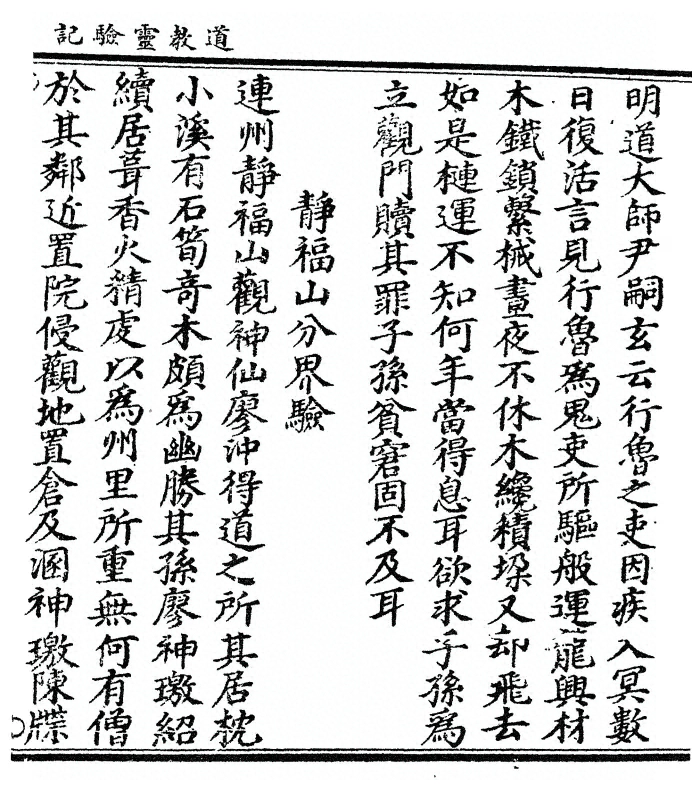 道教靈驗記
明道大師尹嗣玄云行魯之吏因疾入冥數
日復活言見行魯為鬼吏所驅般運龍興材
木鐵鎖繫械晝夜不休木纔積垜又却飛去
如是槤運不知何年當得息耳欲求子孫為
立觀門贖其罪子孫貧窘固不及耳
靜福山分界驗
連州靜福山觀神仙廖沖得道之所其居枕
小溪有石筍奇木頗為幽勝其孫廖神璬紹
續居葺香火精虔以為州里所重無何有僧
於其鄰近置院侵觀地置倉及溷神璬陳牒